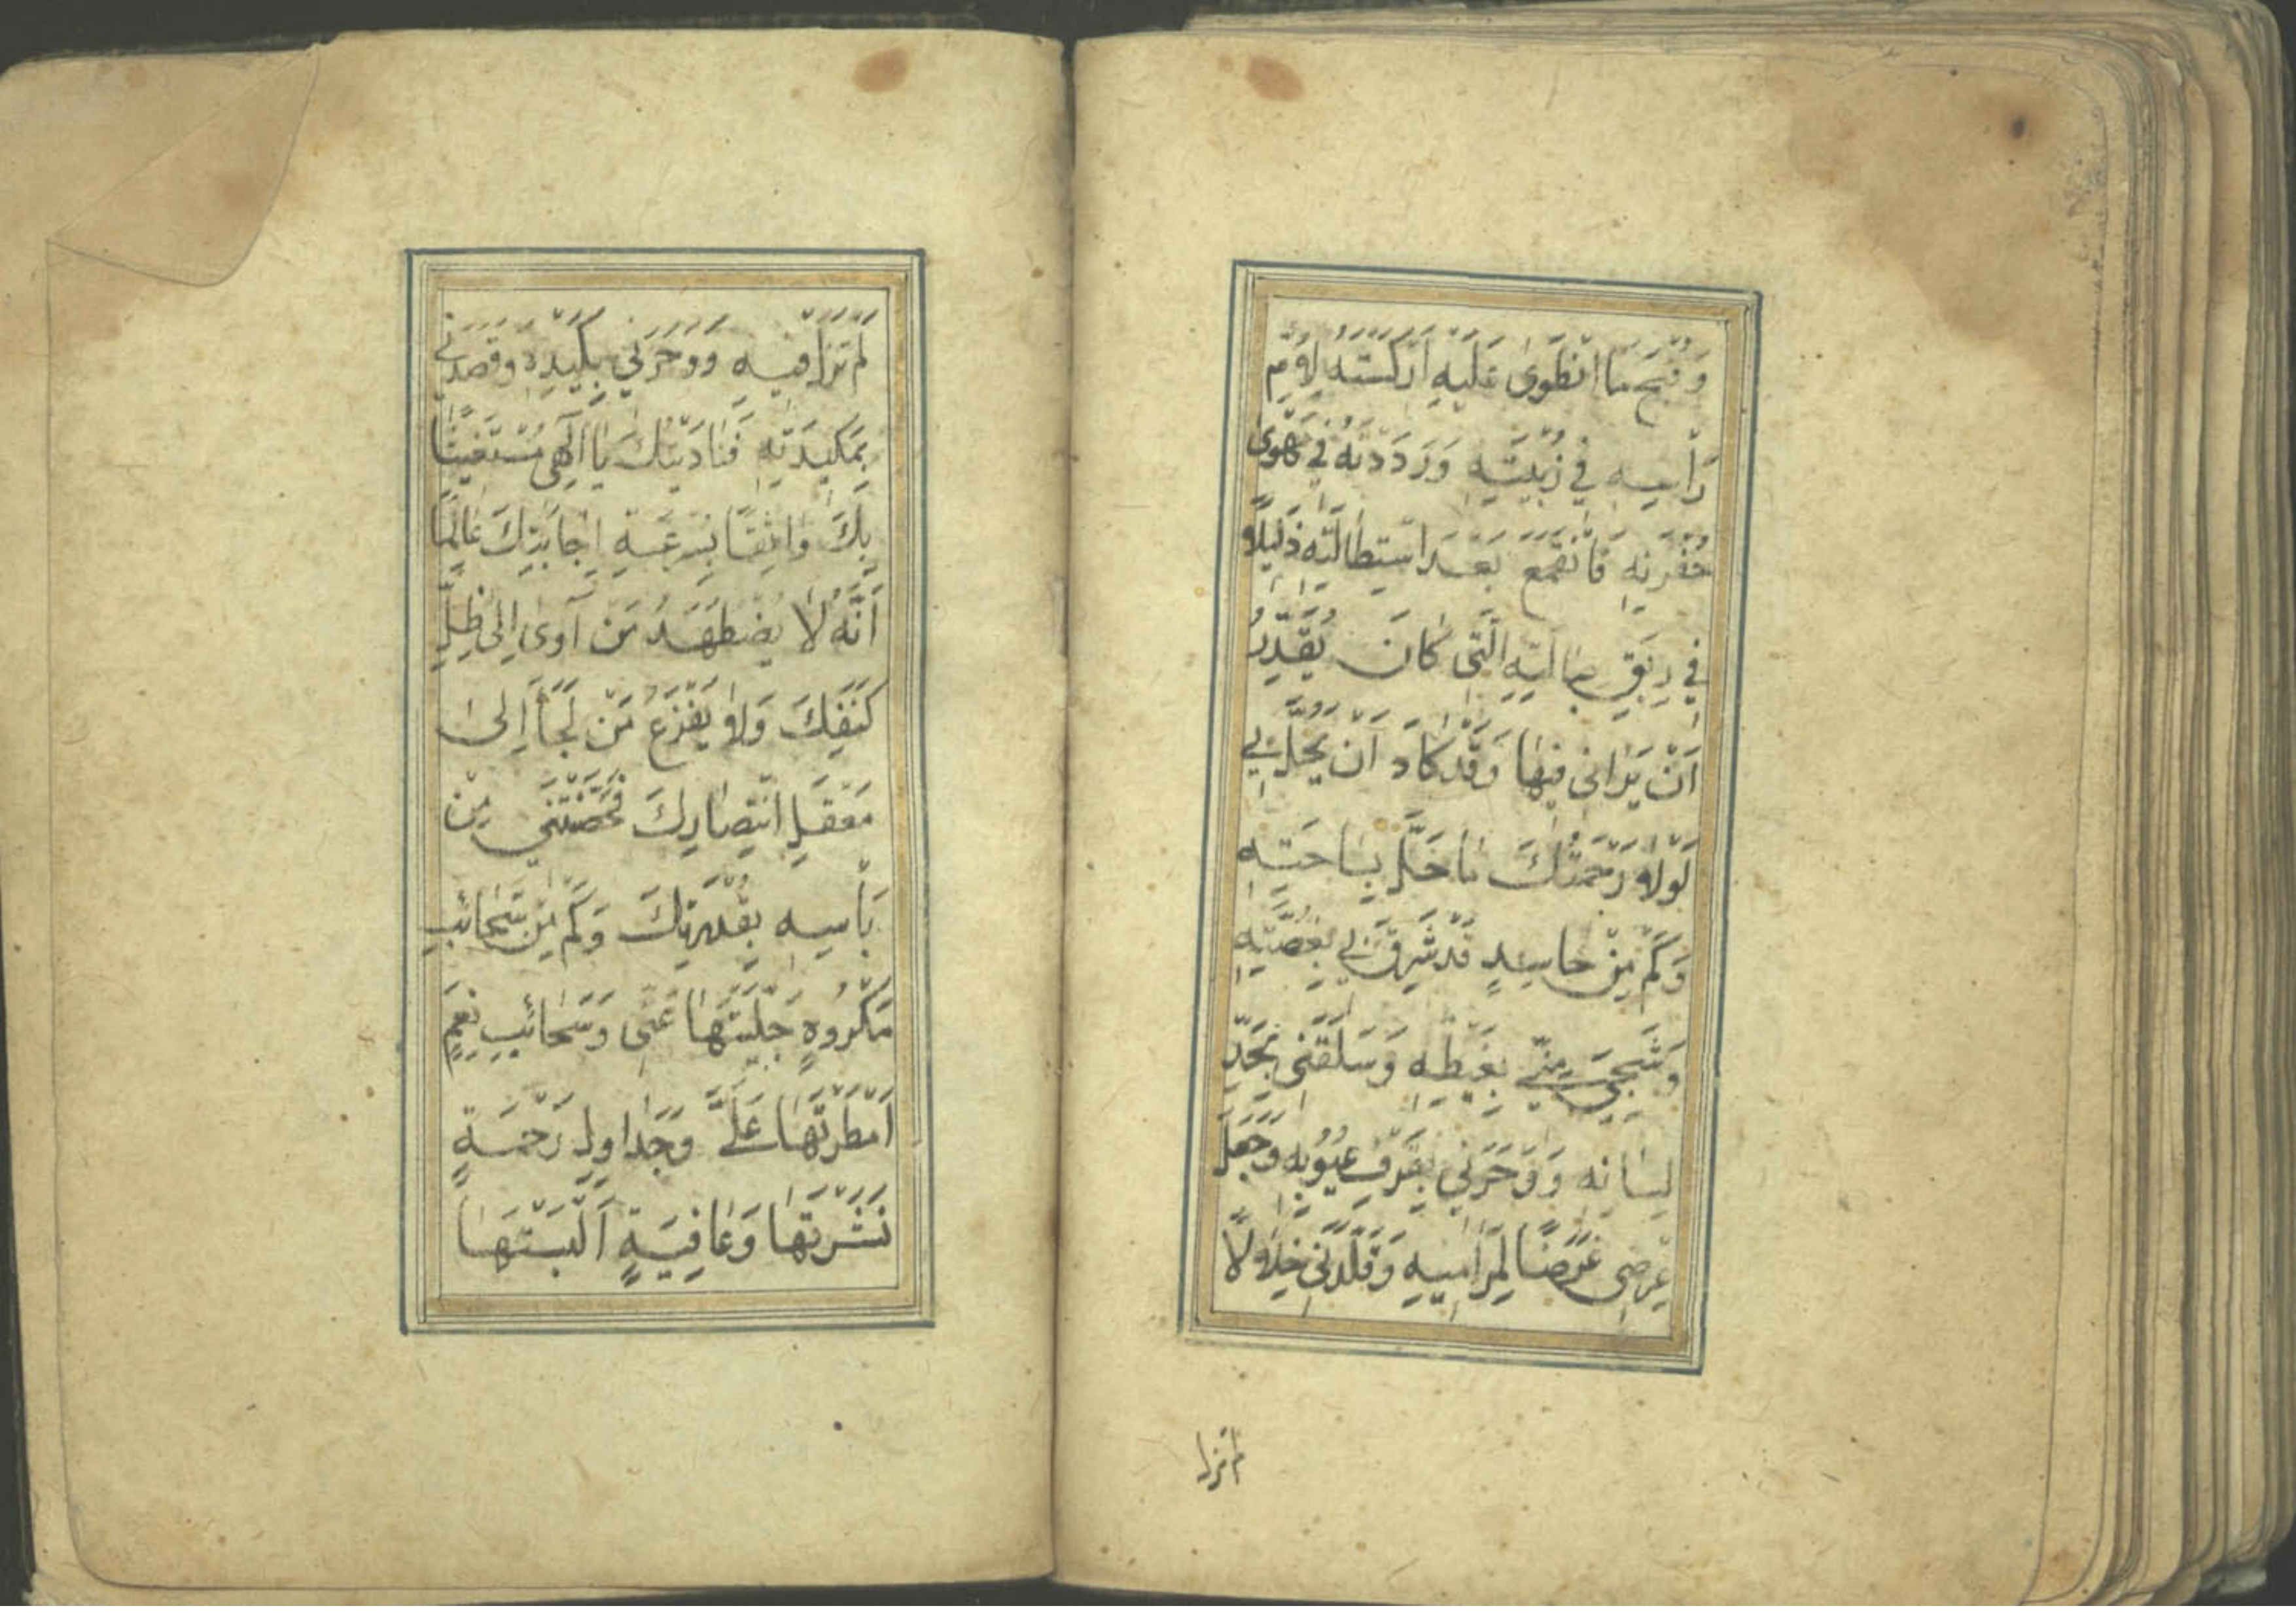 وَقُبْحَ مَا انْطَوىٰ عَلَيْهِ اَرْكَسْتَهُ لِاُمِّ
رَأْسِهِ فِي زُبْيَتِهِ وَرَدَدْتَهُ فِي مَهْوىٰ
حُفْرَتِهِ فَانْقَمَعَ بَعْدَ اسْتِطَالَتِهِ ذَلِيلًا
فِي رِبَقِ حِبَالَتِهِ الَّتِي كَانَ يُقَدِّرُ
اَنْ يَرَانِي فِيهَا وَقَدْ كَادَ اَنْ يَحُلَّ بِي
لَوْلَا رَحْمَتُكَ مَا حَلَّ بِسَاحَتِهِ
وَكَمْ مِنْ حَاسِدٍ قَدْ شَرِقَ بِي بِغُصَّتِهِ
وَشَجِيَ مِنِّي بِغَيْظِهِ وَسَلَقَنِي بِحَدِّ
لِسَانِهِ وَوَحَرَنِي بِقَرْفِ عُيُوبِهِ وَجَعَلَ
عِرْضِي غَرَضًا لِمَرَامِيهِ وَقَلَّدَنِي خِلَالًا
لم تزل
لَمْ تَزَلْ فِيهِ وَوَحَرَنِي بِكَيْدِهِ وَقَصَدَنِي
بِمَكِيدَتِهِ فَنَادَيْتُكَ يَا اِلٰهِي مُسْتَغِيثًا
بِكَ وَاثِقًا بِسُرْعَةِ اِجَابَتِكَ عَالِمًا
اَنَّهُ لَا يُضْطَهَدُ مَنْ آوىٰ اِلىٰ ظِلِّ
كَنَفِكَ وَلَا يَفْزَعُ مَنْ لَجَأَ اِلىٰ
مَعْقَلِ انْتِصَارِكَ فَحَصَّنْتَنِي مِنْ
بَأْسِهِ بِقُدْرَتِكَ وَكَمْ مِنْ سَحَائِبِ
مَكْرُوهٍ جَلَّيْتَهَا عَنِّي وَسَحَائِبِ نِعَمٍ
اَمْطَرْتَهَا عَلَيَّ وَجَدَاوِلِ رَحْمَةٍ
نَشَرْتَهَا وَعَافِيَةٍ اَلْبَسْتَهَا